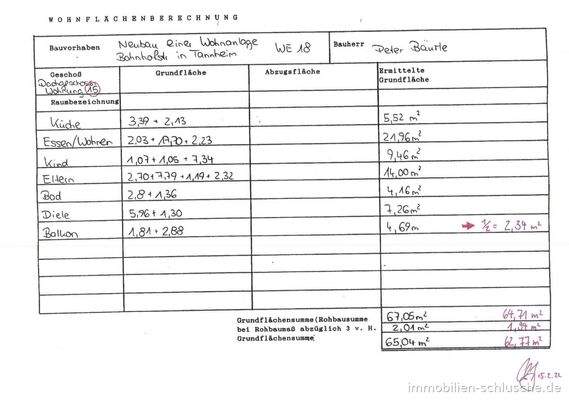 WOHNFLÄCHENBERECHNUNG
Bauvorhaben Neubau einer Wohnanlage Bahnhofstr. in Tannheim WE 18 Bauherr Peter Bäurle
Geschoß Dachgeschoss Wohnung 15 Grundfläche Abzugsfläche Ermittelte Grundfläche
Raumbezeichnung
Küche 3,39 + 2,13 5,52 m²
Essen/Wohnen 2,03 + 17,70 + 2,23 21,96 m²
Kind 1,07 + 1,05 + 7,34 9,46 m²
Eltern 2,70 + 7,79 + 1,19 + 2,32 14,00 m²
Bad 2,8 + 1,36 4,16 m²
Diele 5,96 + 1,30 7,26 m²
Balkon 1,81 + 2,88 4,69 m → 1/2 = 2,34 m²
Grundflächensumme (Rohbausumme 67,05 m² 64,71 m²
bei Rohbaumaß abzüglich 3 v. H. 2,01 m² 1,94 m²
Grundflächensumme 65,04 m² 62,77 m²
15.2.22
immobilien-schlusche.de